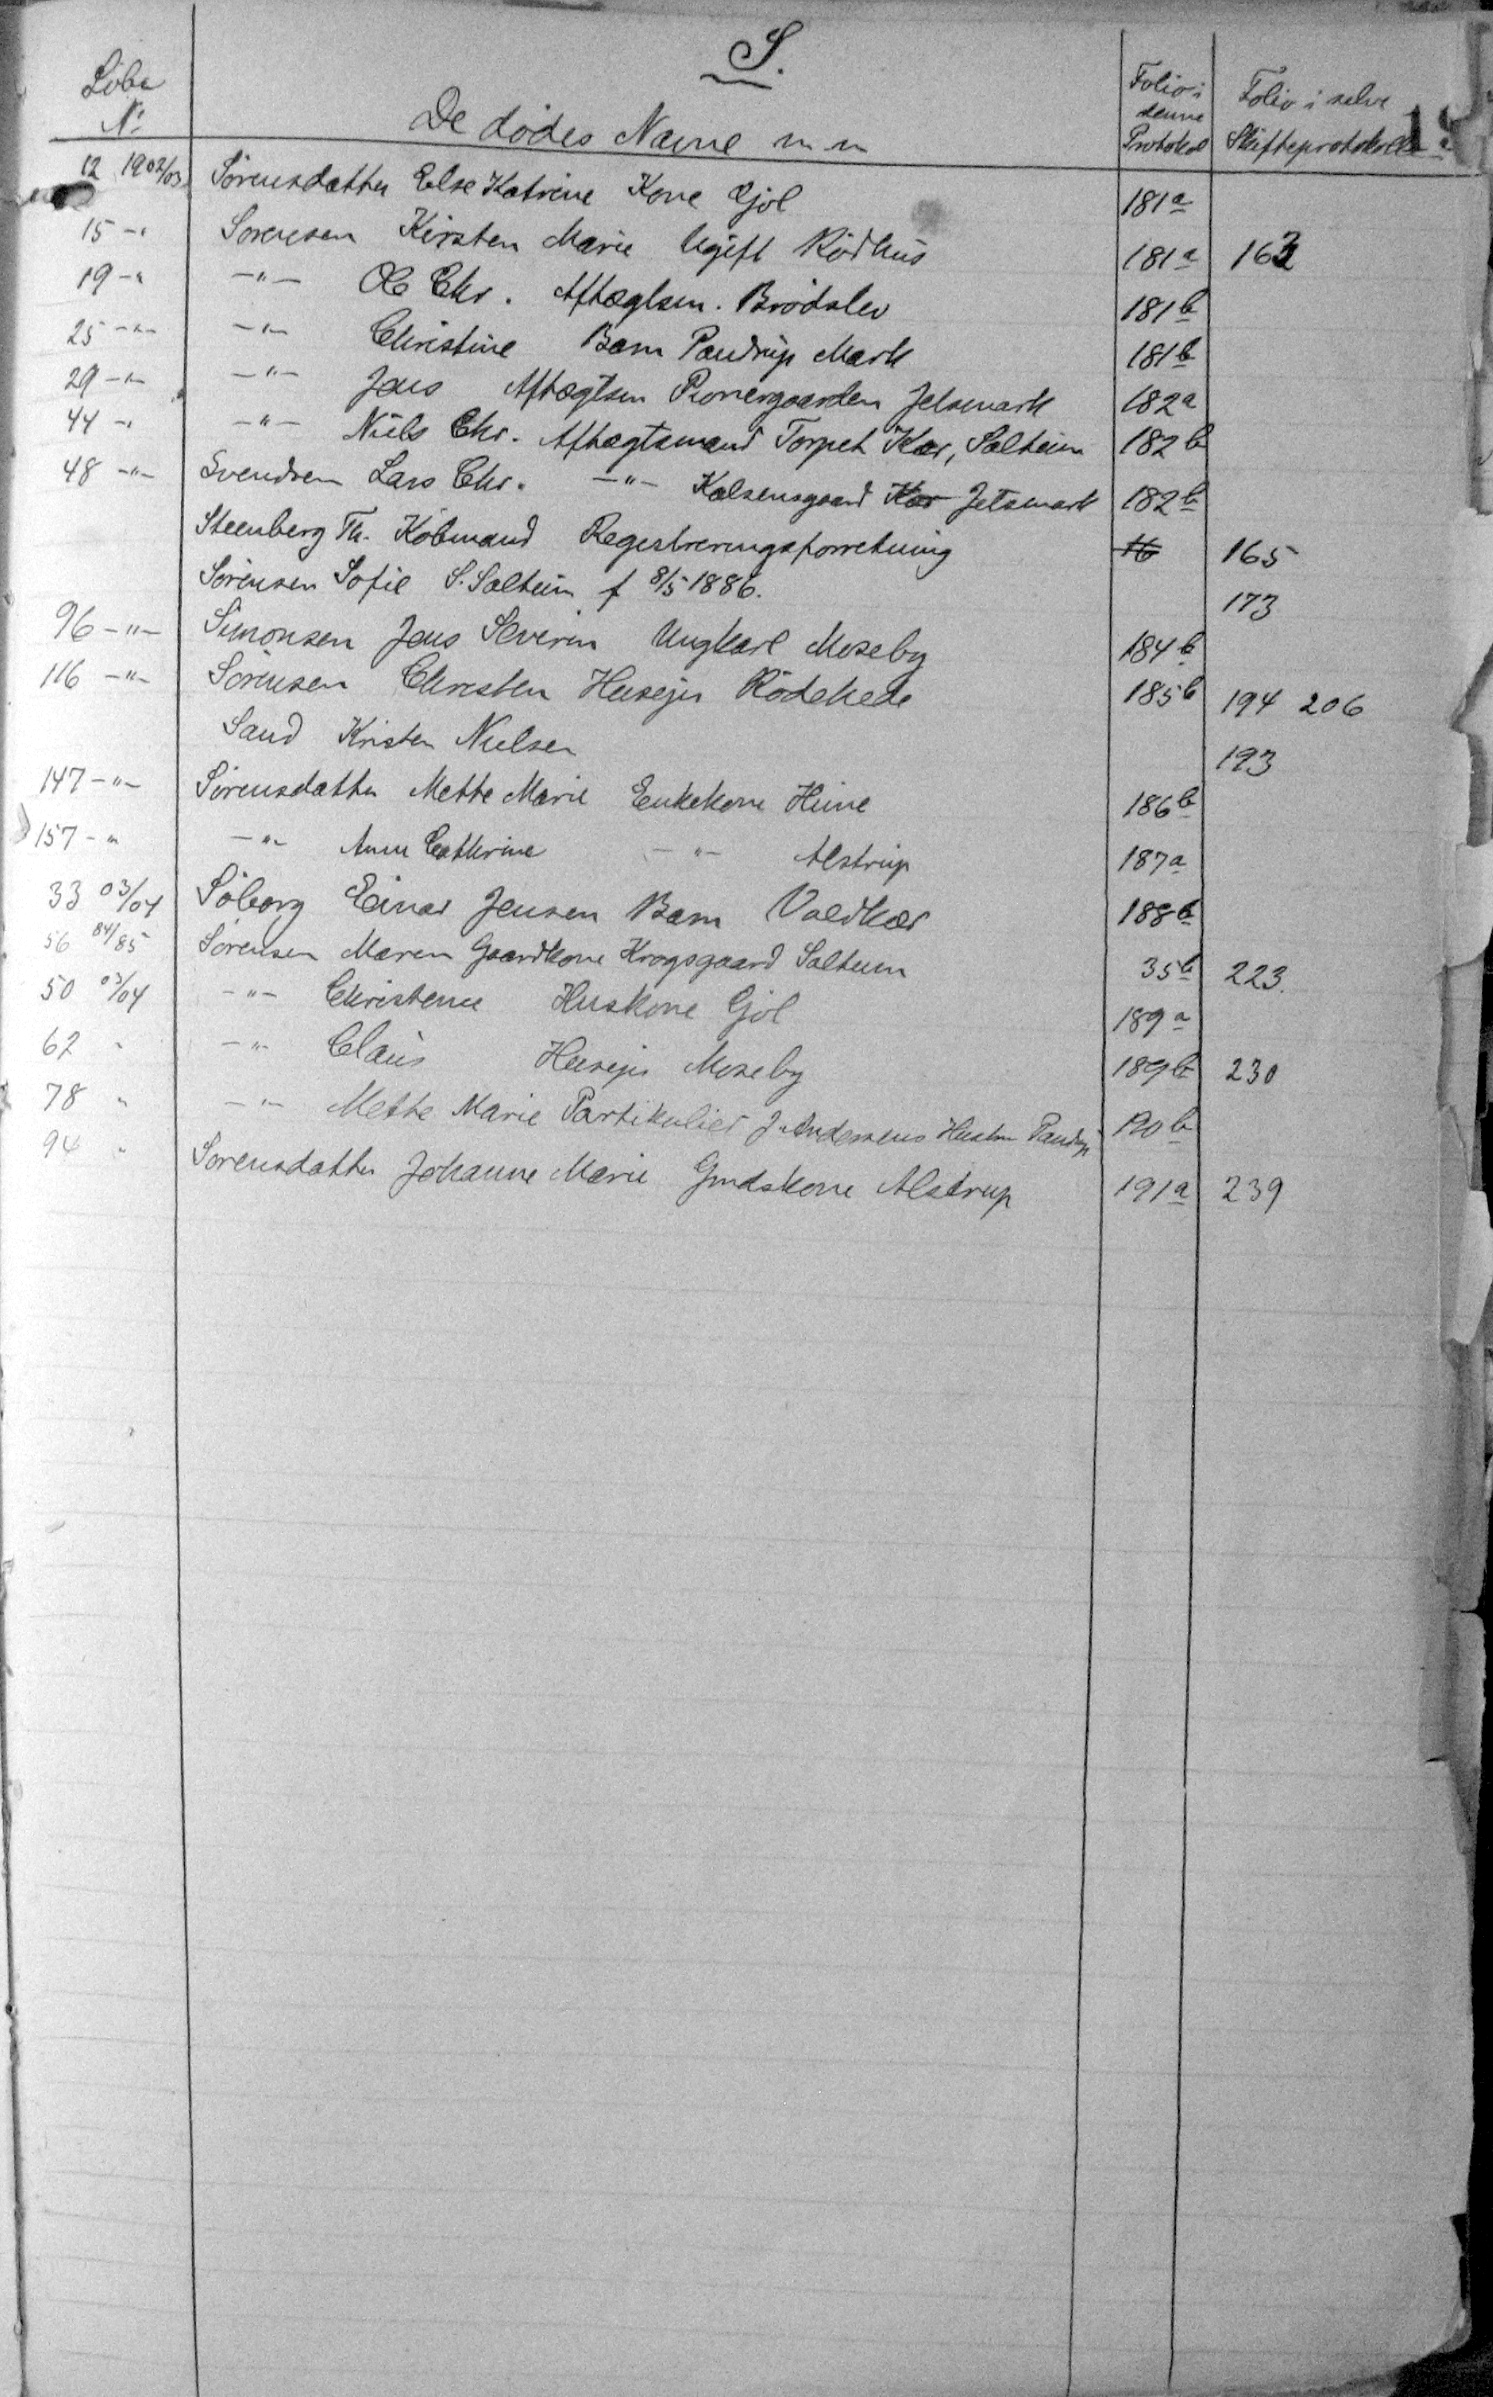 S.
Löbe Nº De dödes Navne m m Folio i denne Protokol Folio i selve Skifteprotokollen
12 1902/03 Sörensdatter Else Katrine Kone Gjöl 181a
15 -"- Sörensen Kirsten Marie Ugift Rödhus 181a 163
19 -"- -"- Ole Chr. Aftægtsm. Brödslev 181b
25 -"- -"- Christine Barn Pandrup Mark 181b
29 -"- -"- Jens Aftægtsm Pionergaarden Jetsmark 182a
44 -"- -"- Niels Chr. Aftægtsmand Torpet Kær, Saltum 182b
48 -"- Svendsen Lars Chr. -"- Kalsensgaard Kær Jetsmark 182b
Steenberg Th. Köbmand Registreringsforretning 16 165
Sörensen Sofie S. Saltum f 8/5 1886. 173
96 -"- Simonsen Jens Severin Ungkarl Moseby 184b
116 -"- Sörensen Christen Husejer Rödehede 185b 194 206
Sand Kristen Nielsen 193
147 -"- Sörensdatter Mette Marie Enkekone Hune 186b
157 -"- -"- Anne Cathrine -"- Alstrup 187a
33 03/04 Söborg Einar Jensen Barn Voldkær 188b
56 84/85 Sörensen Maren Gaardkone Krogsgaard Saltum 35b 223.
50 03/04 -"- Christence Huskone Gjöl 189a
62 " -"- Claus Husejer Moseby 189b 230
78 " -"- Mette Marie Partikulier J. Andersens Hustru Pandrup 190b
94 " Sörensdatter Johanne Marie Gmdskone Alstrup 191a 239